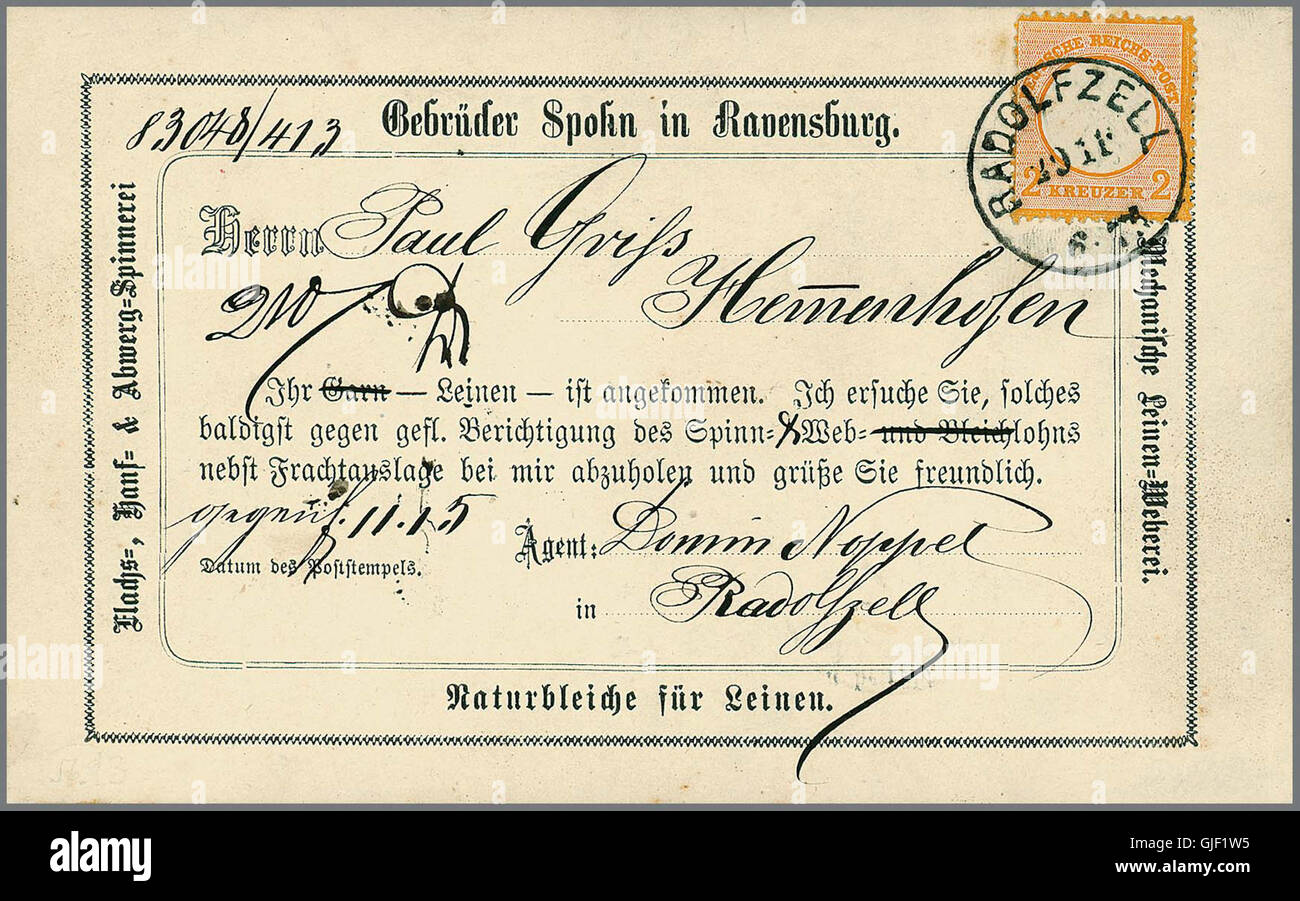 83048/413
Gebrüder Spohn in Ravensburg.
DEUTSCHE REICHS-POST
2 KREUZER 2
RADOLFZELL
20 11
Flachs-, Hanf- & Abwerg-Spinnerei
Mechanische Leinen-Weberei.
Herrn Paul Griss
Hemmenhofen
Ihr Garn — Leinen — ist angekommen. Ich ersuche Sie, solches
baldigst gegen gefl. Berichtigung des Spinn- & Web- und Bleichlohns
nebst Frachtauslage bei mir abzuholen und grüße Sie freundlich.
11.15
Datum des Poststempels.
Agent: Domin Noppel
in Radolfzell
Naturbleiche für Leinen.
alamy
a
alamy stock photo
GJF1W5
www.alamy.com